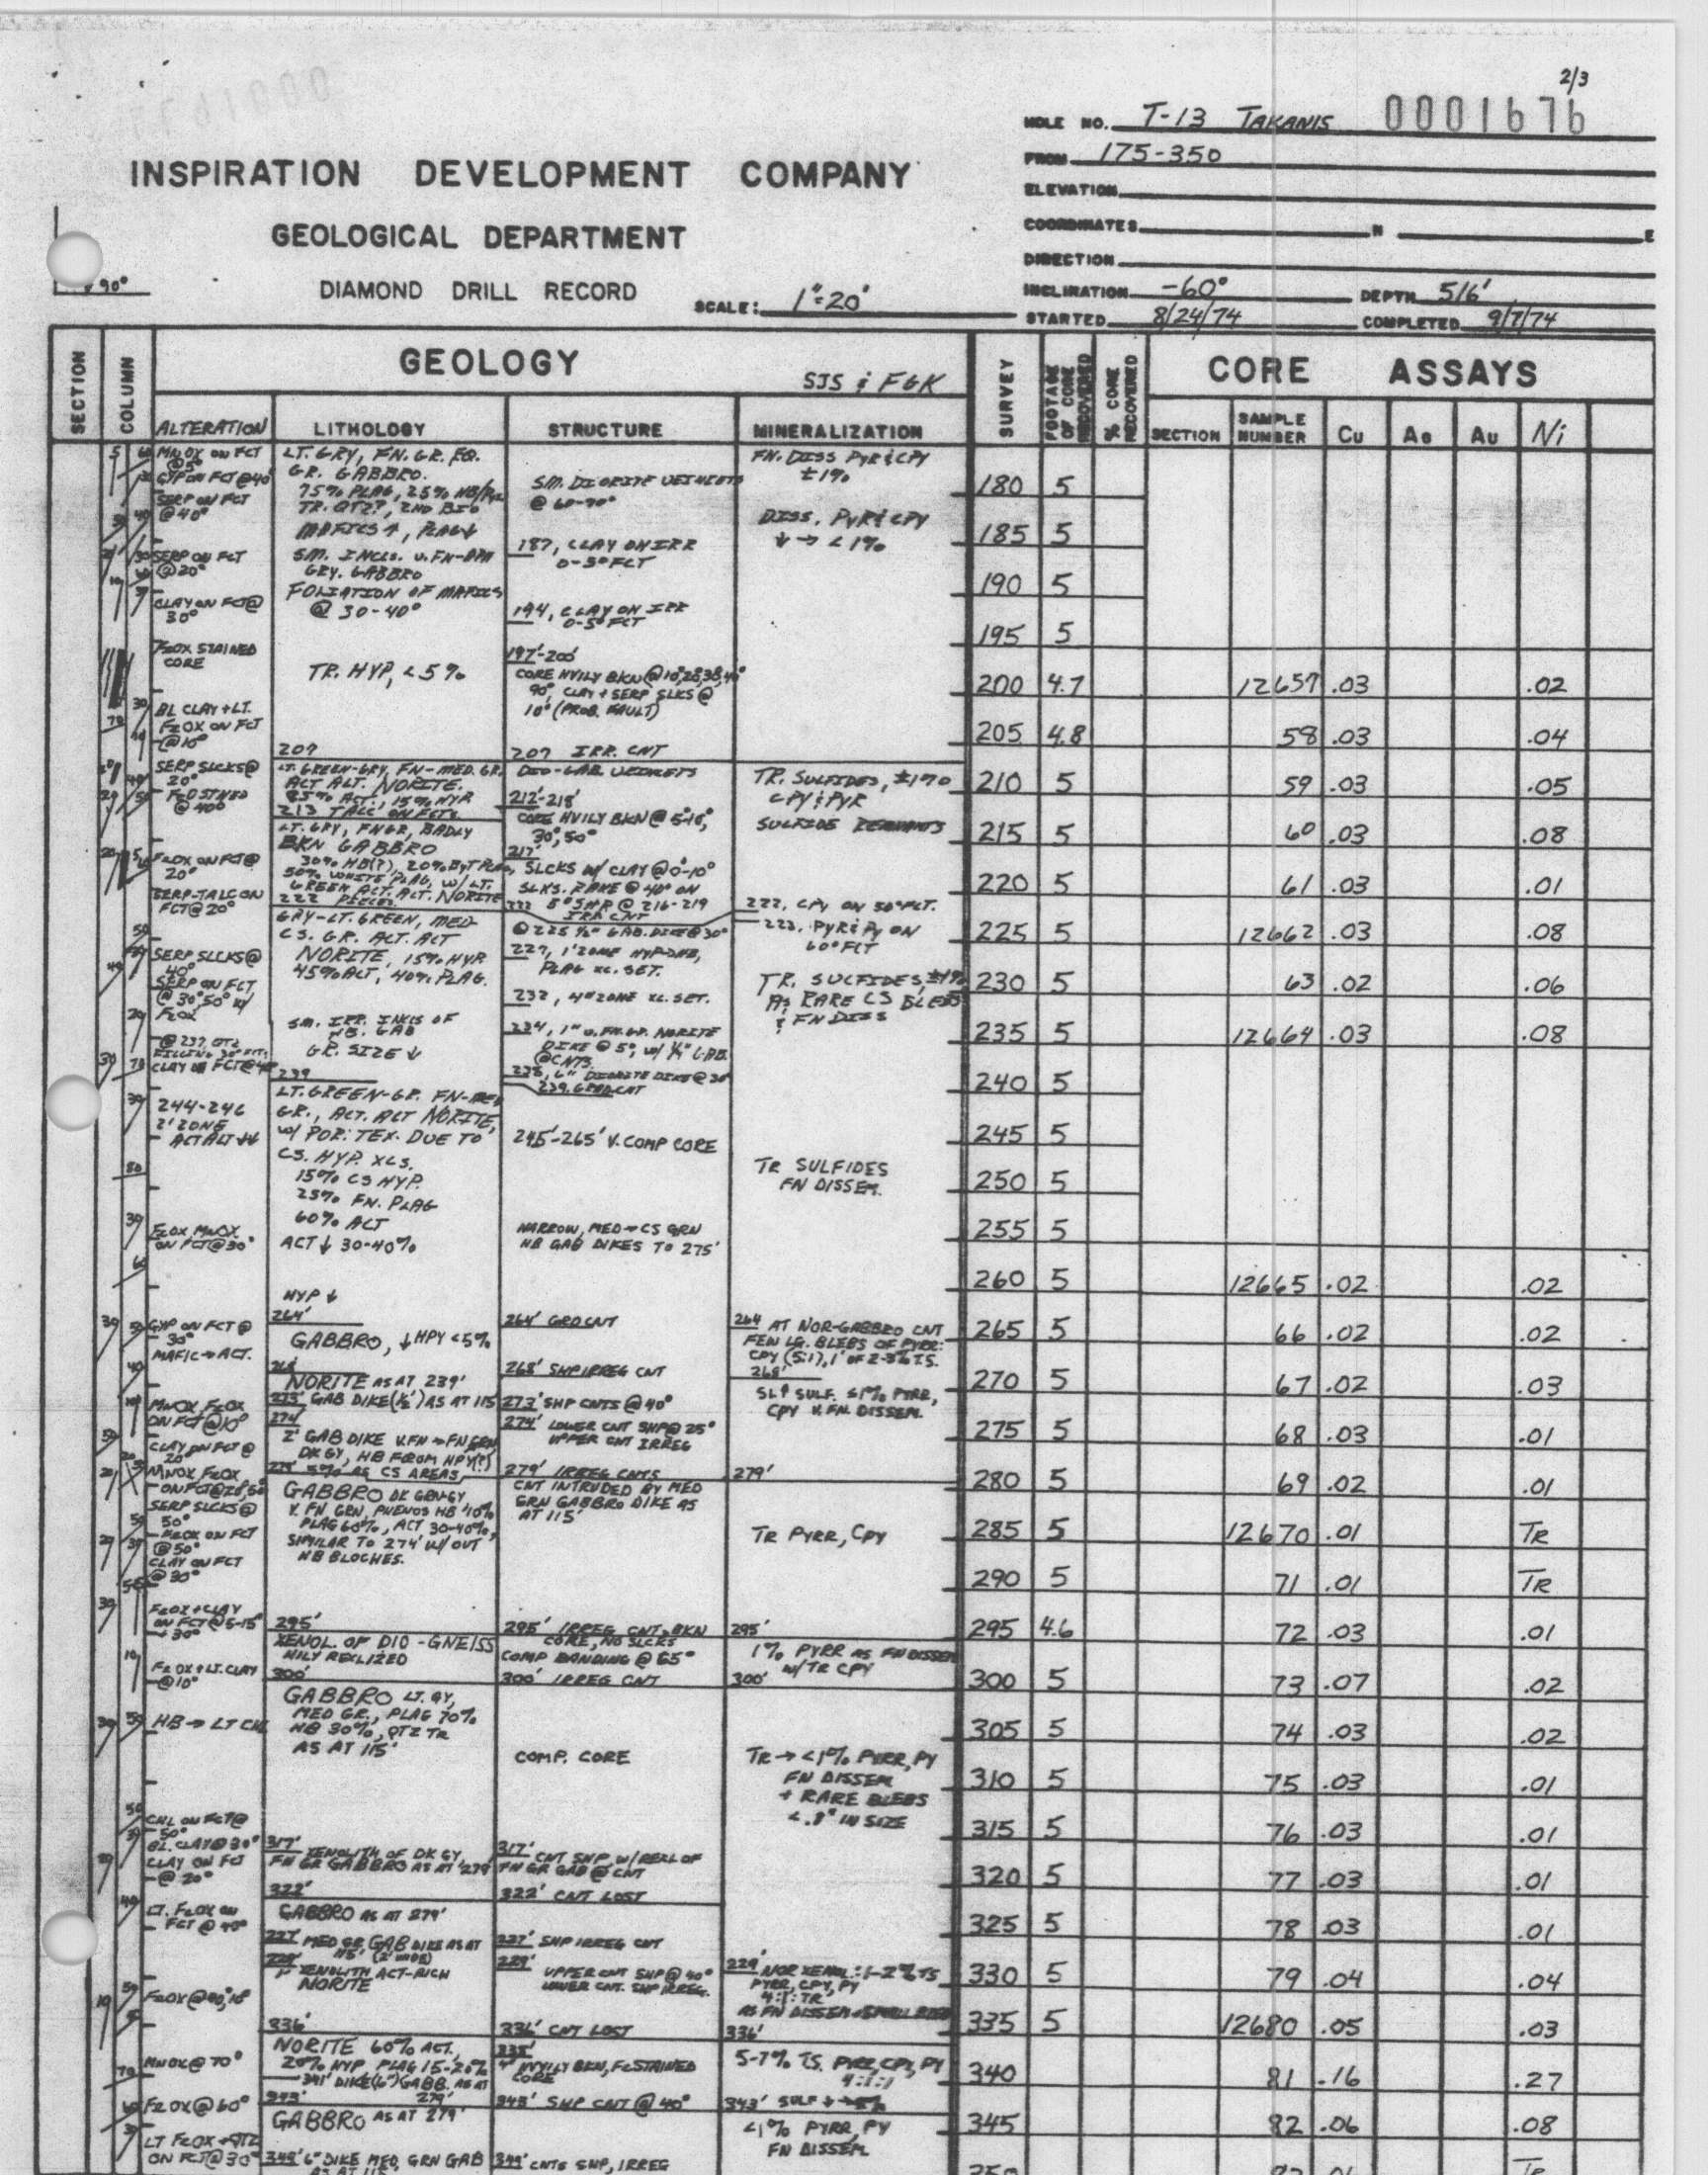 2/3
HOLE NO. T-13 TAKANIS 0001676
FROM 175-350
INSPIRATION DEVELOPMENT COMPANY
ELEVATION
COORDINATES N E
GEOLOGICAL DEPARTMENT
DIRECTION
90°
DIAMOND DRILL RECORD
SCALE: 1"=20'
INCLINATION -60° DEPTH 516'
STARTED 8/24/74 COMPLETED 9/7/74
SECTION
COLUMN
GEOLOGY SJS & FGK
SURVEY
FOOTAGE OF CORE RECOVERED
% CORE RECOVERED
CORE ASSAYS
ALTERATION LITHOLOGY STRUCTURE MINERALIZATION
SECTION SAMPLE NUMBER Cu Ag Au Ni
MNOX ON FCT
GYP ON FCT @40°
SERP ON FCT
@ 40°
SERP ON FCT
@20°
CLAY ON FCT@
30°
FEOX STAINED
CORE
BL CLAY + LT.
FEOX ON FCT
@10°
SERP SLCKS@
20°
@ 40°
FEOX ON FCT@
20°
SERP-TALC ON
FCT@20°
SERP SLCKS@
40°
SERP ON FCT
@ 30°,50° W/
FEOX
CLAY ON FCT@
244-246
2' ZONE
ACT ALT ↓↓
FEOX MNOX
ON FCT@30°
GYP ON FCT@
30°
MAFIC→ACT.
MNOX, FEOX
ON FCT@10°
CLAY ON FCT@
20°
MNOX, FEOX
SERP SLCKS@
50°
FEOX ON FCT
@50°
CLAY ON FCT
@ 30°
FEOX+CLAY
ON FCT@5-15°
+30°
FEOX+LT.CLAY
@10°
HB→LT CHL
CHL ON FCT@
50°
BL. CLAY@30°
CLAY ON FCT
@ 20°
LT. FEOX ON
FCT @ 40°
MNOX@70°
FEOX@60°
LT FEOX+QTZ
ON FCT@30°
LT. GRY, FN. GR. EQ.
GR. GABBRO.
75% PLAG, 25% HB/
TR. QTZ?, 2ND BIO
MAFICS↑, PLAG↓
SM. INCLS. V. FN-
GRY. GABBRO
FOLIATION OF MAFICS
@ 30-40°
TR. HYP, <5%
207
LT. GREEN-GRY, FN-MED. GR.
ACT ALT. NORITE.
85% ACT., 15% HYP
213 TALC ON FCTS
LT. GRY, FNGR, BADLY
BKN GABBRO
GREEN ACT. ALT. NORITE
222
GRY-LT. GREEN, MED
CS. GR. ALT. ACT
NORITE, 15% HYP
45% ALT, 40% PLAG.
SM. IRR. INCLS OF
HB. GAB
GR. SIZE ↓
239
LT. GREEN-GR. FN-MED
GR., ACT. ALT NORITE,
W/ POR. TEX. DUE TO
CS. HYP. XLS.
15% CS HYP.
25% FN. PLAG
60% ACT
ACT↓ 30-40%
HYP ↓
264'
GABBRO, ↓HPY <5%
268'
NORITE AS AT 239'
273' GAB DIKE(½') AS AT 115
274'
2' GAB DIKE V.FN→FN GRN
DK GY, HB FROM HPY(?)
279' 5% AS CS AREAS
GABBRO DK GRN-GY
V. FN GRN, PHENOS HB 10%
PLAG 60%, ACT 30-40%,
SIMILAR TO 274' W/OUT
HB BLOCHES.
295'
XENOL. OF DIO-GNEISS
HVLY REXLIZED
300'
GABBRO LT. GY,
MED GR., PLAG 70%
HB 30%, QTZ TR
AS AT 115'
317'
XENOLITH OF DK GY,
FN GR GABBRO AS AT 279
322'
GABBRO AS AT 279'
327' MED GR GAB DIKE AS AT
115' (2' WIDE)
329'
1' XENOLITH ACT-RICH
NORITE
336'
NORITE 60% ACT.,
20% HYP, PLAG 15-20%
341' DIKE(6") GABB. AS AT
279'
343'
GABBRO AS AT 279'
349' 6" DIKE MED, GRN GAB
AS AT 115
SM. DIORITE VEINLETS
@ 60-90°
187, CLAY ON IRR
0-5° FCT
194, CLAY ON IRR
0-5° FCT
197'-200'
CORE HVILY BKN @
90°, CLAY + SERP SLKS @
10° (PROB. FAULT)
207 IRR. CNT
DIO-GAB VEINLETS
212'-218'
CORE HVILY BKN @ 5-10°,
30°,50°
217'
SLCKS W/ CLAY @ 0-10°
SLKS. RAKE @ 40° ON
5° SHR @ 216-219
222 IRR CNT
@225 ½" GAB. DIKE@30°
227, 1' ZONE HYP-
PLAG XL. SET.
232, 4" ZONE XL. SET.
234, 1" V. FN. GR. NORITE
DIKE @ 5°, W/ ¼" GAB.
@CNTS
238, 6" DIORITE DIKE@30°
239. GRD CNT
245'-265' V. COMP CORE
NARROW, MED→CS GRN
HB GAB DIKES TO 275'
264' GRD CNT
268' SHP IRREG CNT
273' SHP CNTS @ 40°
274' LOWER CNT SHP@ 25°
UPPER CNT IRREG
279' IRREG CNTS
CNT INTRUDED BY MED
GRN GABBRO DIKE AS
AT 115'
295' IRREG CNT, BKN
CORE, NO SLCKS
COMP BANDING @ 65°
300' IRREG CNT
COMP. CORE
317' CNT SHP W/REXL OF
FN GR GAB @ CNT
322' CNT LOST
327' SHP IRREG CNT
329'
UPPER CNT SHP @ 40°
LOWER CNT. SHP IRREG.
336' CNT LOST
4' HVYILY BKN, FE STAINED
CORE
343' SHP CNT @ 40°
349' CNTS SHP, IRREG
FN. DISS PYR & CPY
±1%
DISS. PYR & CPY
↓ → <1%
TR. SULFIDES, ±1%
CPY & PYR
SULFIDE REMNANTS
222, CPY ON 50° FCT.
223, PYR & PY ON
60° FCT
TR. SULFIDES, ±1%
AS RARE CS BLEBS
& FN DISS
TR SULFIDES
FN DISSEM.
264 AT NOR-GABBRO CNT
FEW LG. BLEBS OF PYRR:
CPY (5:1), 1' OF 2-3% T.S.
268'
SL↑ SULF. ≤1% PYRR,
CPY V. FN. DISSEM.
279'
TR PYRR, CPY
295'
1% PYRR AS FN DISSEM
W/TR CPY
300'
TR→<1% PYRR, PY
FN DISSEM
+ RARE BLEBS
<.8" IN SIZE
329' NOR XENOL: 1-2% TS
PYRR, CPY, PY
4:1:TR
AS FN DISSEM + SMALL BLEBS
336'
5-7% TS. PYRR, CPY, PY
4:1:1
343' SULF
<1% PYRR, PY
FN DISSEM
180 5
185 5
190 5
195 5
200 4.7 12657 .03 .02
205 4.8 58 .03 .04
210 5 59 .03 .05
215 5 60 .03 .08
220 5 61 .03 .01
225 5 12662 .03 .08
230 5 63 .02 .06
235 5 12664 .03 .08
240 5
245 5
250 5
255 5
260 5 12665 .02 .02
265 5 66 .02 .02
270 5 67 .02 .03
275 5 68 .03 .01
280 5 69 .02 .01
285 5 12670 .01 TR
290 5 71 .01 TR
295 4.6 72 .03 .01
300 5 73 .07 .02
305 5 74 .03 .02
310 5 75 .03 .01
315 5 76 .03 .01
320 5 77 .03 .01
325 5 78 .03 .01
330 5 79 .04 .04
335 5 12680 .05 .03
340 81 .16 .27
345 82 .06 .08
350